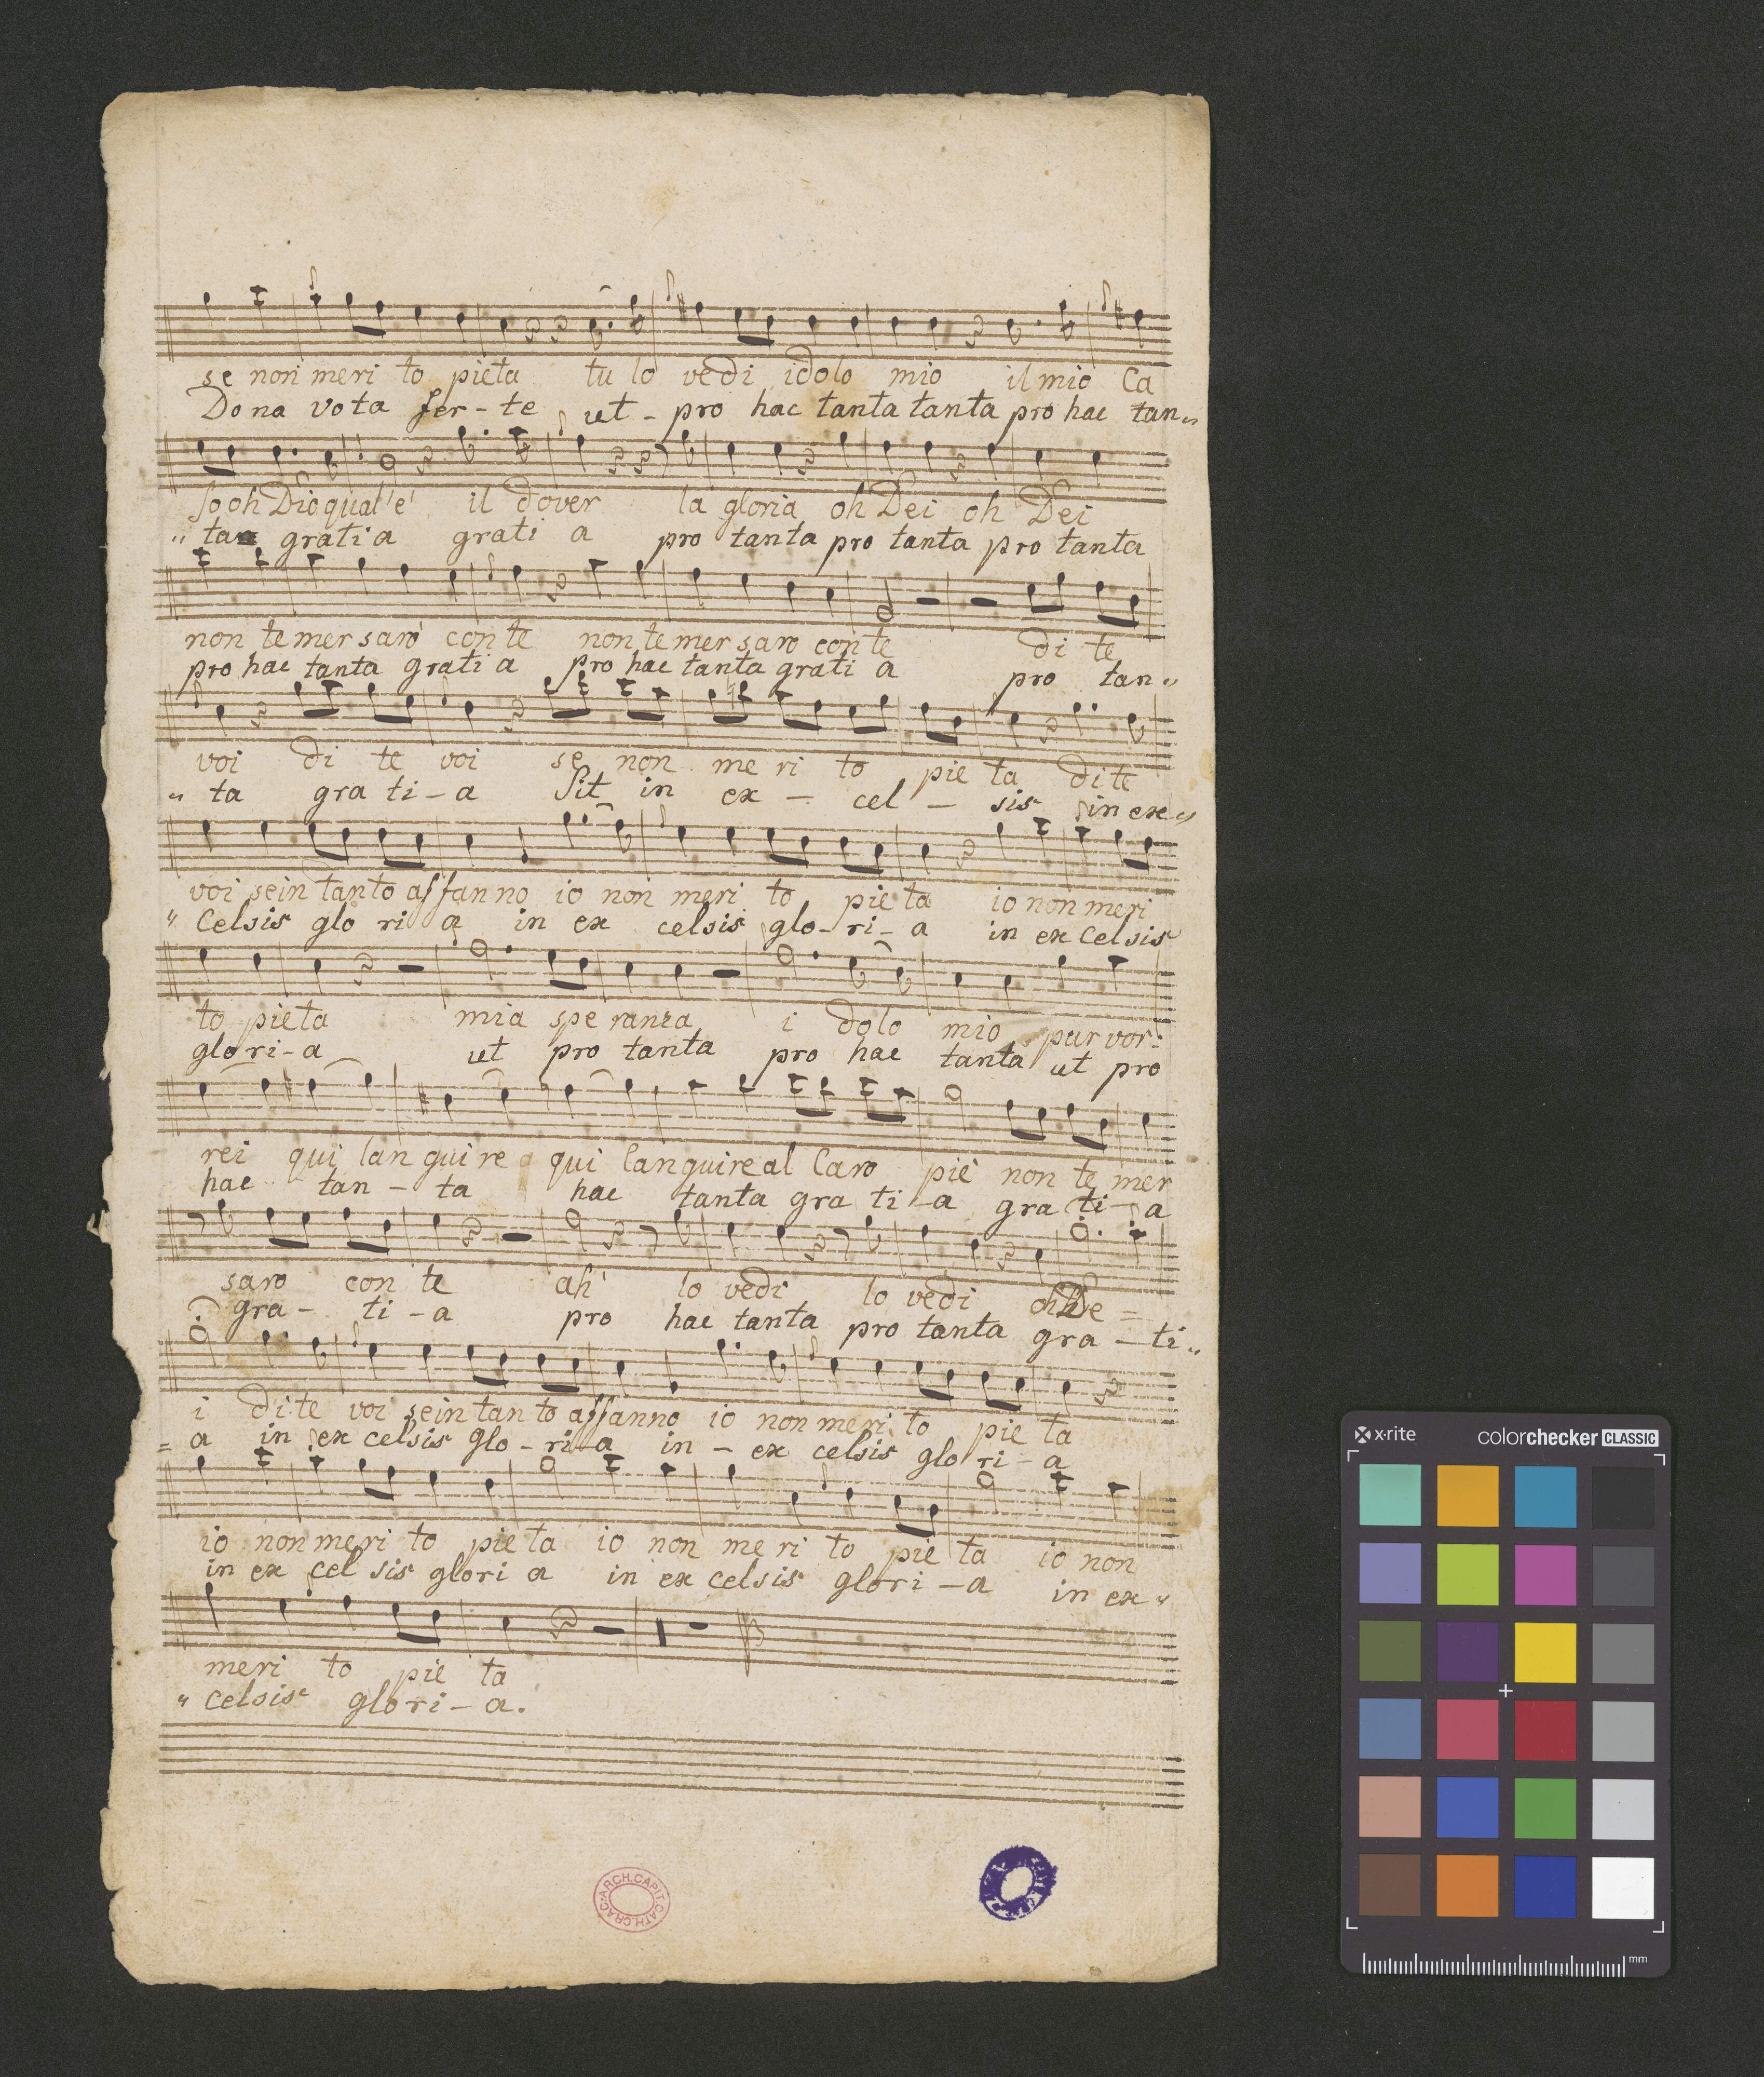 se non meri to pieta tu lo vedi idolo mio il mio Ca
Dona vota fer - te ut - pro hac tanta tanta pro hac tan„
so oh Dio qual'e' il dover la gloria oh Dei oh Dei
„ tan gratia grati a pro tanta pro tanta pro tanta
non te mer sarò con te non te mer saro con te di te
pro hac tanta grati a pro hac tanta grati a pro tan„
voi di te voi se non me ri to pie ta di te
„ ta gra ti - a Sit in ex - cel - sis in ex„
voi se in tan to affan no io non meri to pie ta io non meri
„ Celsis glo ri a in ex celsis glo - ri - a in ex Celsis
to pieta mia spe ranza i dolo mio pur vor:
glo ri - a ut pro tanta pro hac tanta ut pro
rei qui lan gui re qui languire al Caro pie' non te mer
hac tan - ta hac tanta gra ti - a gra ti - a
saro con te ah' lo vedi lo vedi oh De =
gra - ti - a pro hac tanta pro tanta gra - ti„
i di te voi se in tan to affanno io non meri to pie ta
= a in ex celsis glo - ri - a in - ex celsis glo ri - a
io non meri to pie ta io non me ri to pie ta io non
in ex cel sis glori a in ex celsis glori - a in ex„
meri to pie ta
„ Celsis glo ri - a.
ARCH.CAPIT.CATH.CRAC.
x-rite colorchecker CLASSIC
mm